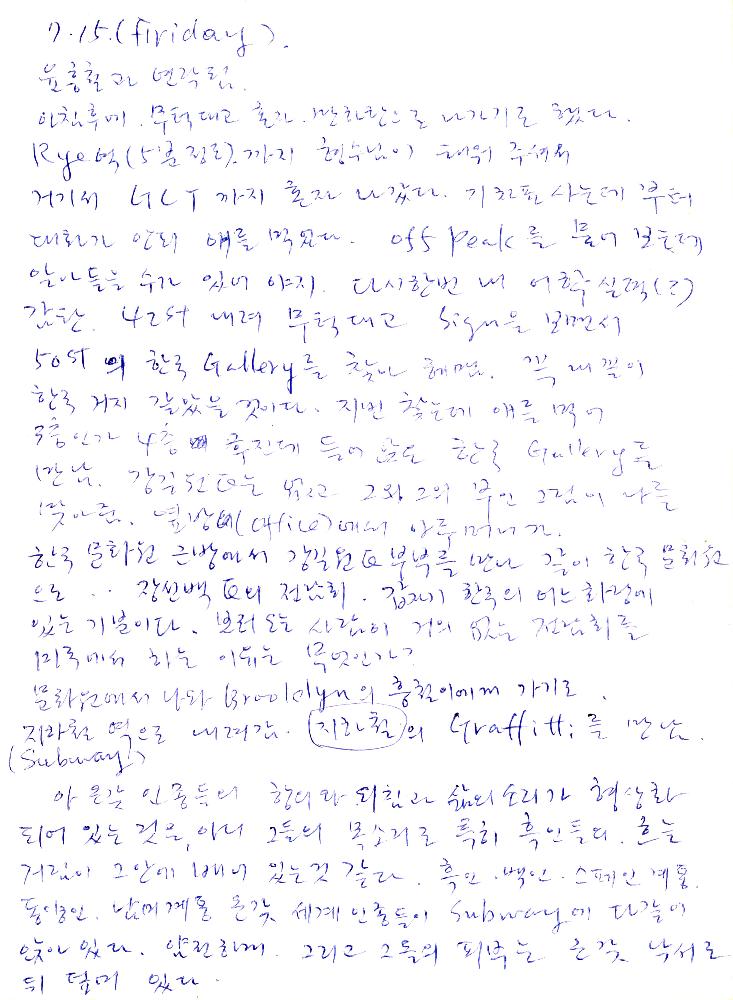 7. 15. (firiday).
윤흥철과 연락됨.
아침후에 무턱대고 혼자 맨하탄으로 나가기로 했다.
Rye역(5분정도)까지 형수님이 태워 주셔서
거기서 GCT까지 혼자 나갔다. 기차표 사는데 부터
대화가 안되 애를 먹었다. off peak를 물어 보는데
알아들을 수가 있어 야지. 다시한번 내 어학실력(?)
감탄. 42st 내려 무턱대고 Sign을 보면서
50st의 한국 Gallery를 찾아 헤맴. 꼭 내꼴이
한국 거지 같았을 것이다. 지번 찾는데 애를 먹어
3층인가 4층 후진데 들어 있는 한국 Gallery를
만남. 강길원 는 없고 그와 그의 부인 그림이 나를
맞아줌. 옆방에(office)에서 아주머니가.
한국 문화원 근방에서 강길원 부부를 만나 같이 한국 문화원
으로 .. 장선백 의 전람회. 갑자기 한국의 어느 화랑에
있는 기분이다. 보러 오는 사람이 거의 없는 전람회를
미국에서 하는 이유는 무엇인가?
문화원에서 나와 Brooklyn의 흥철이에게 가기로.
지하철 역으로 내려감. 지하철의 Graffitti를 만남.
(Subway)
아 온갖 인종들의 항의와 외침과 삶의 소리가 형상화
되어 있는 것을, 아니 그들의 목소리로 특히 흑인들의
그안에 배어 있는것 같다. 흑인. 백인. 스페인계통.
동양인. 남미계통 온갖 세계 인종들이 Subway에 다같이
앉아 있다. 얌전하게. 그리고 그들의 피부는 온갖 낙서로
뒤 덮여 있다.